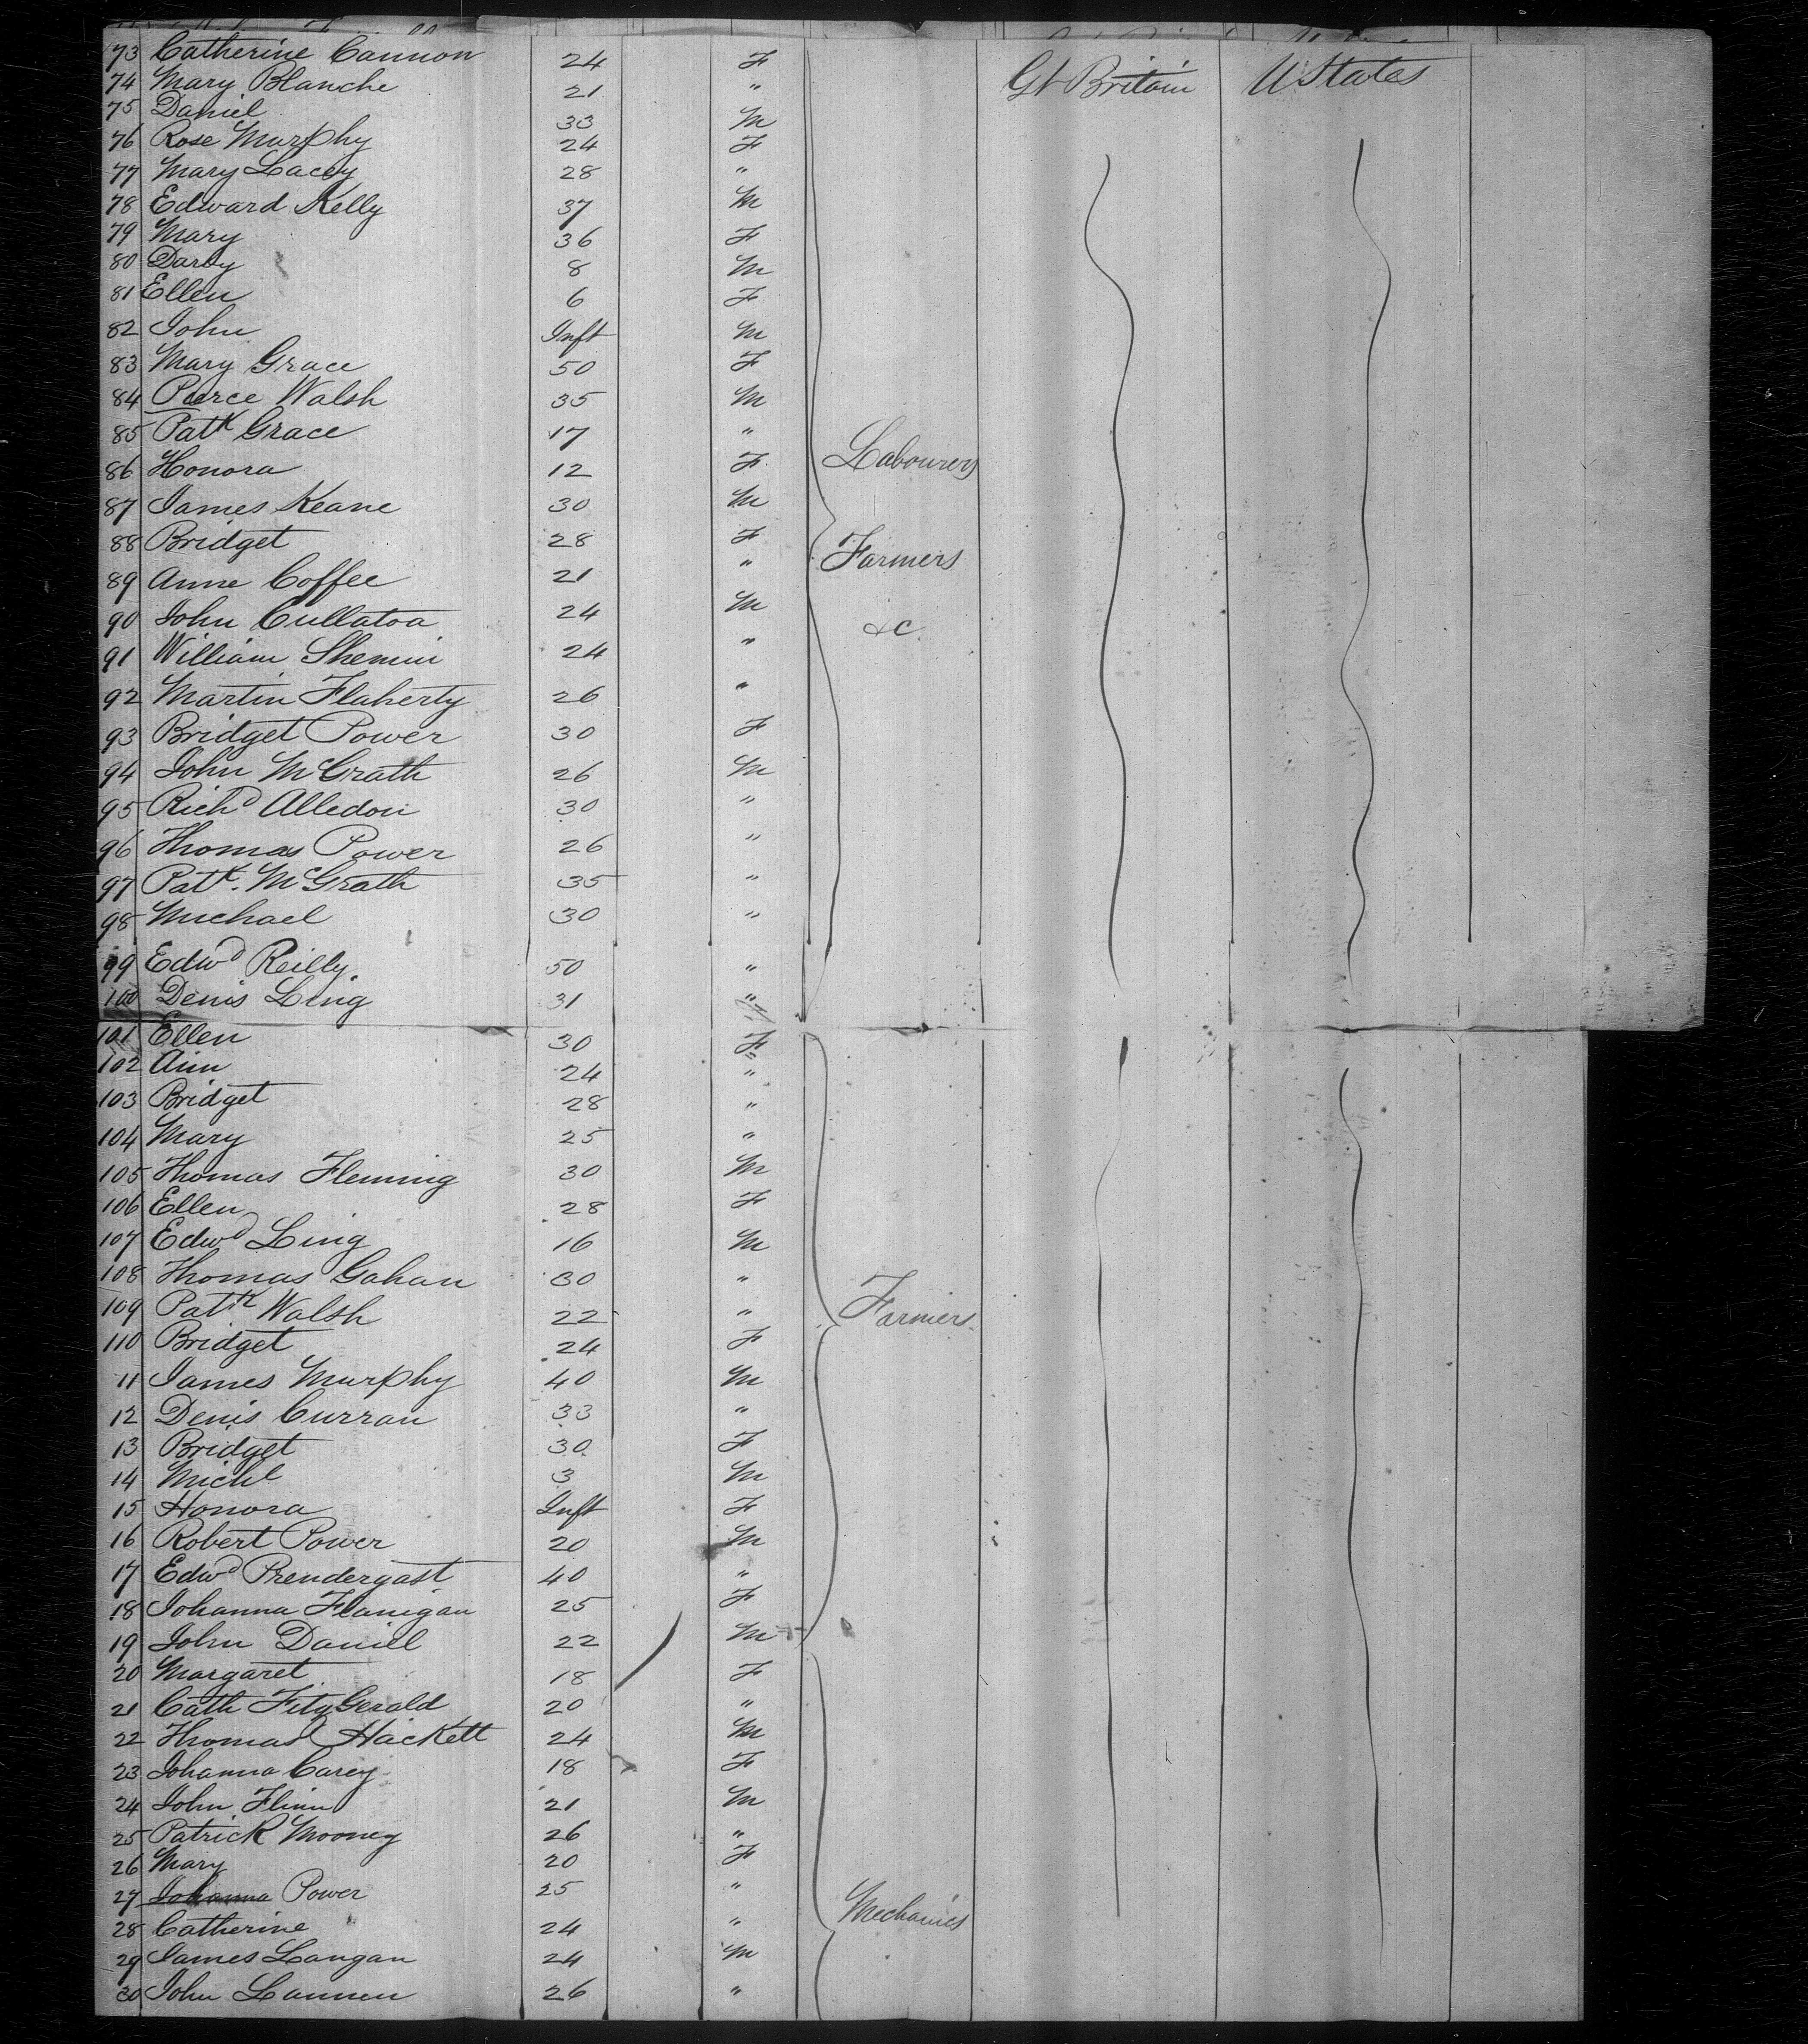 73 Catherine Cannon 24 F Gt Britain U States
74 Mary Blanche 21 "
75 Daniel 33 M
76 Rose Murphy 24 F
77 Mary Lacey 28 "
78 Edward Kelly 37 M
79 Mary 36 F
80 Darby 8 M
81 Ellen 6 F
82 John Inft M
83 Mary Grace 50 F
84 Pierce Walsh 35 M
85 Patk Grace 17 " Labourers
86 Honora 12 F
87 James Keane 30 M
88 Bridget 28 F Farmers
89 Anne Coffee 21 "
90 John Cullatoa 24 M &c
91 William Shemin 24 "
92 Martin Flaherty 26 "
93 Bridget Power 30 F
94 John McGrath 26 M
95 Richd Alledon 30 "
96 Thomas Power 26 "
97 Patk. McGrath 35 "
98 Michael 30 "
99 Edwd Reilly 50 "
100 Denis Ling 31 "
101 Ellen 30 F
102 Ann 24 "
103 Bridget 28 "
104 Mary 25 "
105 Thomas Fleming 30 M
106 Ellen 28 F
107 Edwd Ling 16 M
108 Thomas Gahan 30 "
109 Patk Walsh 22 " Farmers
110 Bridget 24 F
11 James Murphy 40 M
12 Denis Curran 33 "
13 Bridget 30 F
14 Michl 3 M
15 Honora Inft F
16 Robert Power 20 M
17 Edwd Prendergast 40 "
18 Johanna Flanigan 25 F
19 John Daniel 22 M
20 Margaret 18 F
21 Cath FitzGerald 20 "
22 Thomas Hackett 24 M
23 Johanna Carey 18 F
24 John Flinn 21 M
25 Patrick Mooney 26 "
26 Mary 20 F
27 Johanna Power 25 "
28 Catherine 24 " Mechanics
29 James Langan 24 M
30 John Lannen 26 "